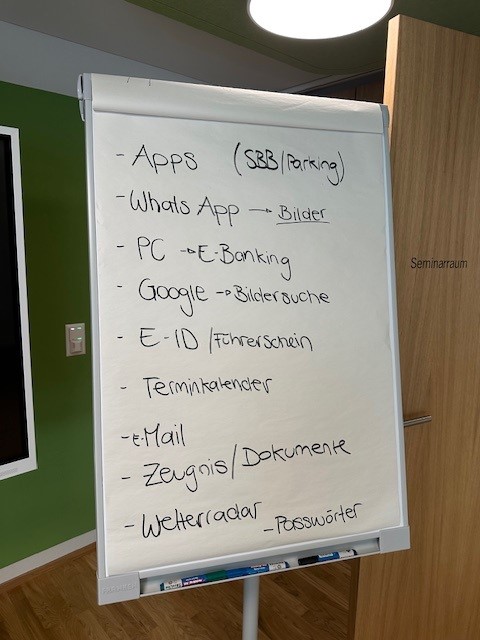 - Apps (SBB/Parking)
- Whats App → Bilder
- PC → E-Banking
- Google → Bildersuche
- E-ID /Führerschein
- Terminkalender
- E-Mail
- Zeugnis/Dokumente
- Wetterradar - Passwörter
Seminarraum